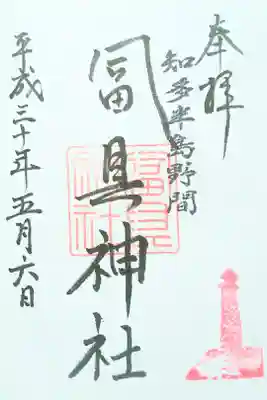 奉拝
知多半島野間
冨具神社
平成三十年五月六日